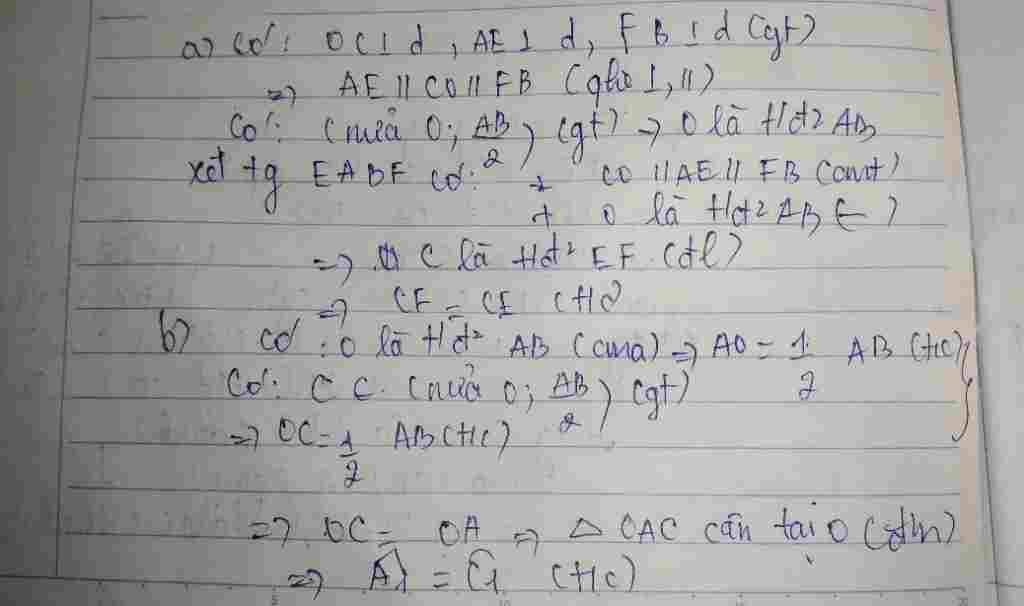 a) Có: OC ⊥ d, AE ⊥ d, FB ⊥ d (gt)
=> AE // CO // FB (qhệ ⊥, //)
Có: (nửa O; AB/2) (gt) => O là t/đ² AB
xét tg EABF có: + CO // AE // FB (cmt)
+ O là t/đ² AB (- )
=> C là t/đ² EF (đl)
=> CF = CE (t/c)
b) Có: O là t/đ² AB (cma) => AO = 1/2 AB (t/c)
Có: C ∈ (nửa O; AB/2) (gt)
=> OC = 1/2 AB (t/c)
=> OC = OA => △ OAC cân tại O (đ/n)
=> Â1 = Ĉ1 (t/c)